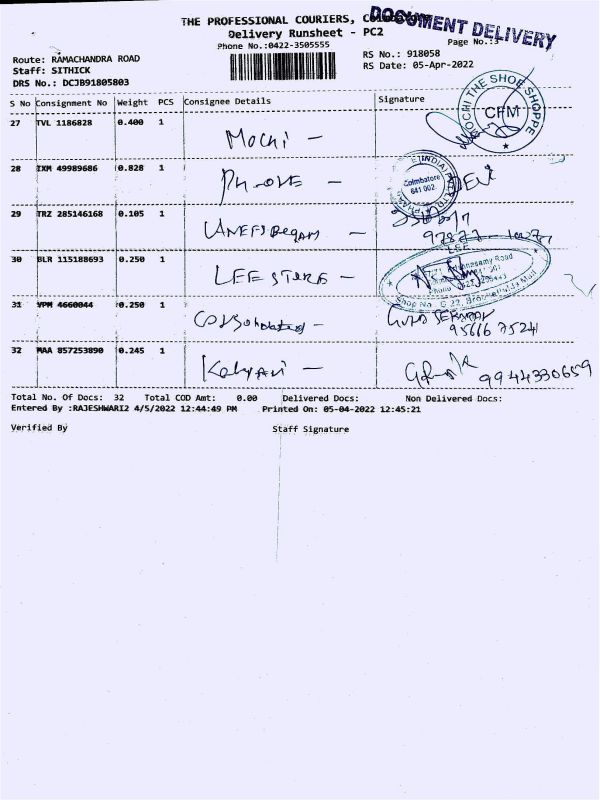 THE PROFESSIONAL COURIERS,
DOCUMENT DELIVERY
Delivery Runsheet - PC2
Phone No.:0422-3505555
Page No.:3
Route: RAMACHANDRA ROAD
RS No.: 918058
Staff: SITHICK
RS Date: 05-Apr-2022
DRS No.: DCJB91805803
S No Consignment No Weight PCS Consignee Details Signature
27 TVL 1186828 0.400 1 Mochi -
MOCHI THE SHOE SHOPPE
CFM
28 IXM 49989686 0.828 1
Coimbatore
641 002
29 TRZ 285146168 0.105 1
30 BLR 115188693 0.250 1 LEE STORE -
LEE
Shop No. G 22, Brookefields Mall
31 VPM 4660044 0.250 1
32 MAA 857253890 0.245 1 Kalyani -
9944330659
Total No. Of Docs: 32 Total COD Amt: 0.00 Delivered Docs: Non Delivered Docs:
Entered By :RAJESHWARI2 4/5/2022 12:44:49 PM Printed On: 05-04-2022 12:45:21
Verified By Staff Signature